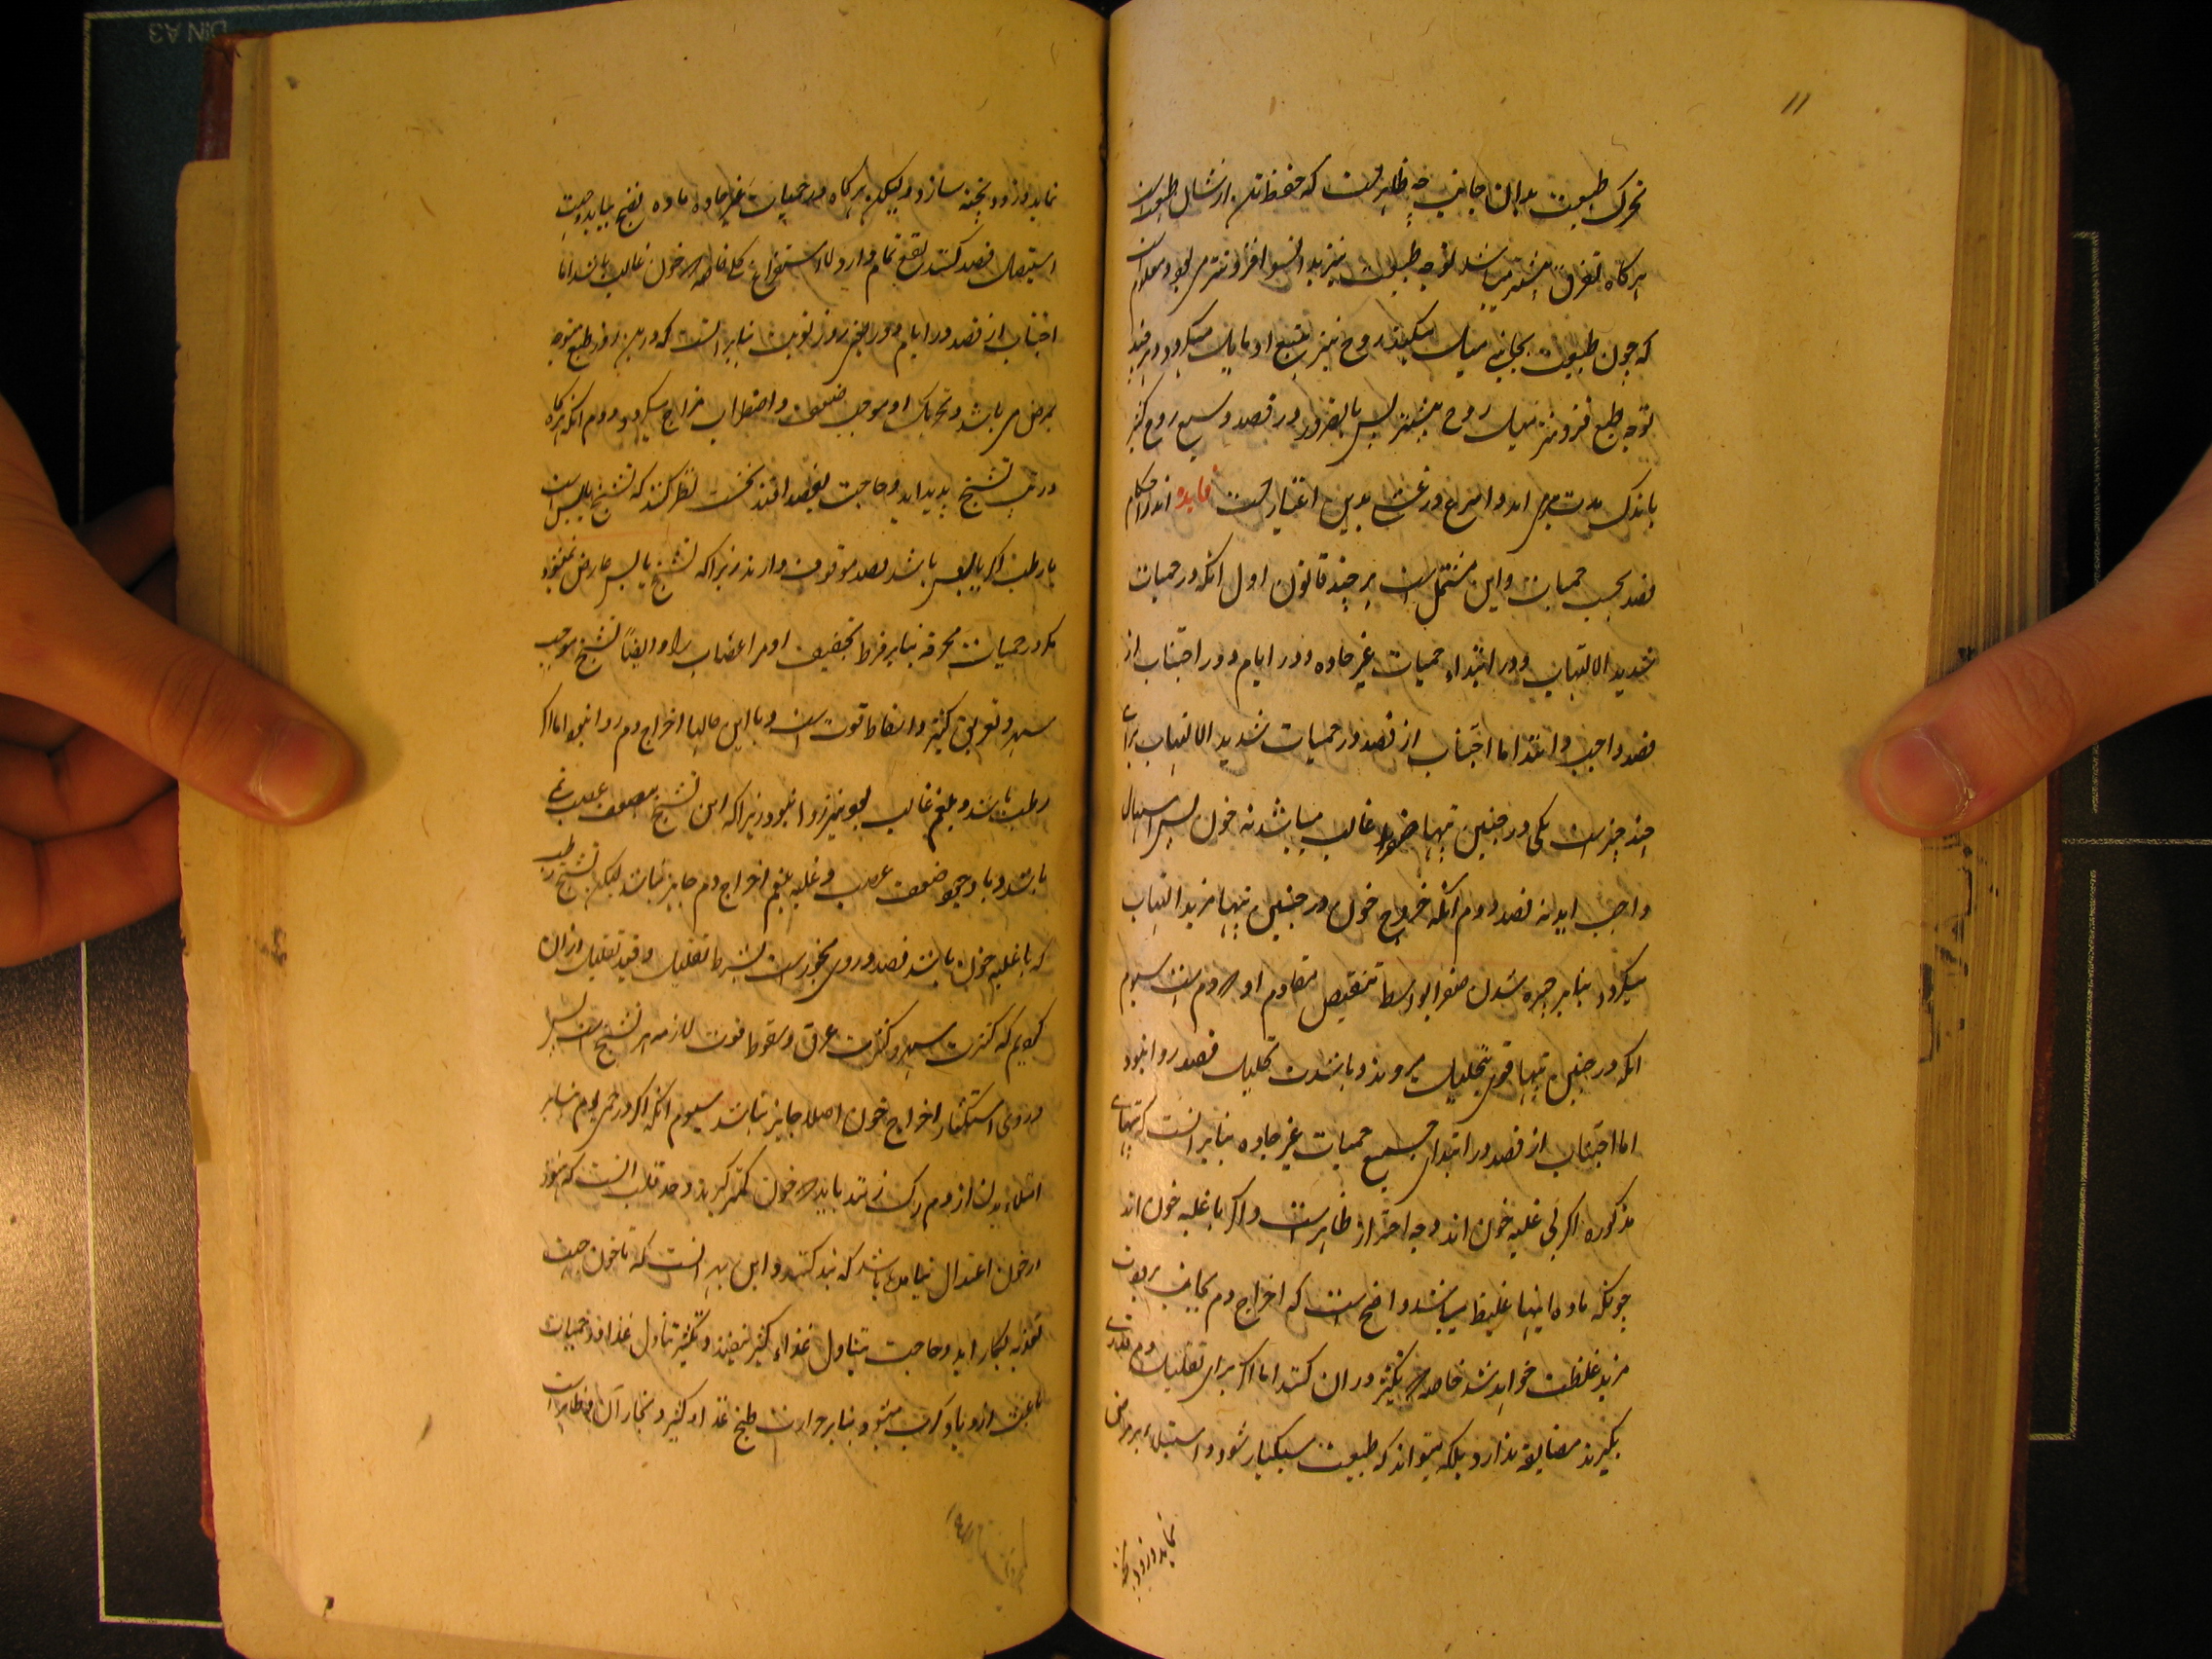 ۱۱
تحرک طبیعت بدان جانب چه ظاهرست که حفظ تن از شان طبیعت است
هرگاه تفرق بیشتر میباشد توجه طبیعت نیز بدانسو افزونتر می بود و معلوم است
که چون طبیعت بجانبی میل میکند روح نیز بتبع او مایل میگردد و هر چند
توجه طبع فزونتر میل روح بیشتر پس بالضرور در فصد وسیع روح کثیر
باندک مدت می اید و اسرع در غشی بدین اعتبارست فایده اندر احکام
فصد بحسب حمیات و این مشتمل است بر چند قانون اول انکه در حمیات
شدید الالتهاب و در ابتداء حمیات غیر حاده و در ایام دور اجتناب از
فصد واجب دانند اما اجتناب از فصد در حمیات شدید الالتهاب برای
چند چیز است یکی در چنین تپها صفرا غالب میباشد نه خون پس اسهال
واجب اید نه فصد دوم انکه خروج خون در چنین تپها مزید التهاب
میگردد بنابر چیره شدن صفرا بواسطه تنقیص مقاوم او که دم است سیوم
انکه در چنین تپها قوی بتحلیل میروند و باشدت تحلیل فصد روا نبود
اما اجتناب از فصد در ابتدای جمیع حمیات غیر حاده بنابر انست که تپهای
مذکوره اگر بی غلبه خون اند وجه احتراز ظاهرست و اگر با غلبه خون اند
چونکه ماده اینها غلیظ میباشد و واضح است که اخراج دم بجانب برودت
مزید غلظت خواهد شد خاصه که تکثیر در ان کنند اما اگر برای تقلیل دم قدری
بگیرند مضایقه ندارد بلکه میتواند که طبیعت سبکبار شود و استیلاء بر مرض
نماید و زود پخته
نماید و زود پخته سازد و لیکن هرگاه در حمیات غیر حاده ماده نضج بیابد و جهت
استیصال فصد کنند نفع تمام دارد لا استفراغ کلی خاصه که خون غالب باشد اما
اجتناب از فصد در ایام دور یعنی روز نوبت بنابر انست که درین روز طبع متوجه
بمرض می باشد و تحریک او موجب ضعف و اضطراب مزاج میگردد دوم انکه هرگاه
در تپ تشنج پدید اید و حاجت بفصد افتد نخست نظر کنند که تشنج یابس است
یا رطب اگر یابس باشد فصد موقوف دارند زیراکه تشنج یابس عارض نمیشود
مگر در حمیات محرقه بنابر فرط تجفیف او مر اعصاب را و ایضاً تشنج موجب
سهر و تعریق کثیر و اسقاط قوت است و با این حالها اخراج دم روا نبود اما اگر
رطب باشد و بلغم غالب بود نیز روا نبود زیراکه این تشنج بضعف عصب نما
باشد و با وجود ضعف عصب و غلبه بلغم اخراج دم جایز نباشد لیکن تشنج رطب
که با غلبه خون باشد فصد در وی مجوز است بشرط تقلیل و قید تقلیل ازان
کویم که کثرت سهر و کثرت عرق و سقوط قوت لازمه هر تشنج است پس
در وی استکثار اخراج خون اصلا جایز نباشد سیوم انکه اگر در حمی یوم بنابر
امتلاء بدن از دم رگ زنند باید که خون کمتر گیرند و حد قلت انست که هنوز
از خون اعتدال نیامده باشد که بند کنند و این بهر انست که تا خون جهت
تغذیه بکار اید و حاجت بتناول غذاء کثیر نیفتد و تکثیر تناول غذا در حمیات
باعث ازدیاد کرب میشود بنابر حرارت طبخ غذاء کثیر و بخار آن و ظاهر است